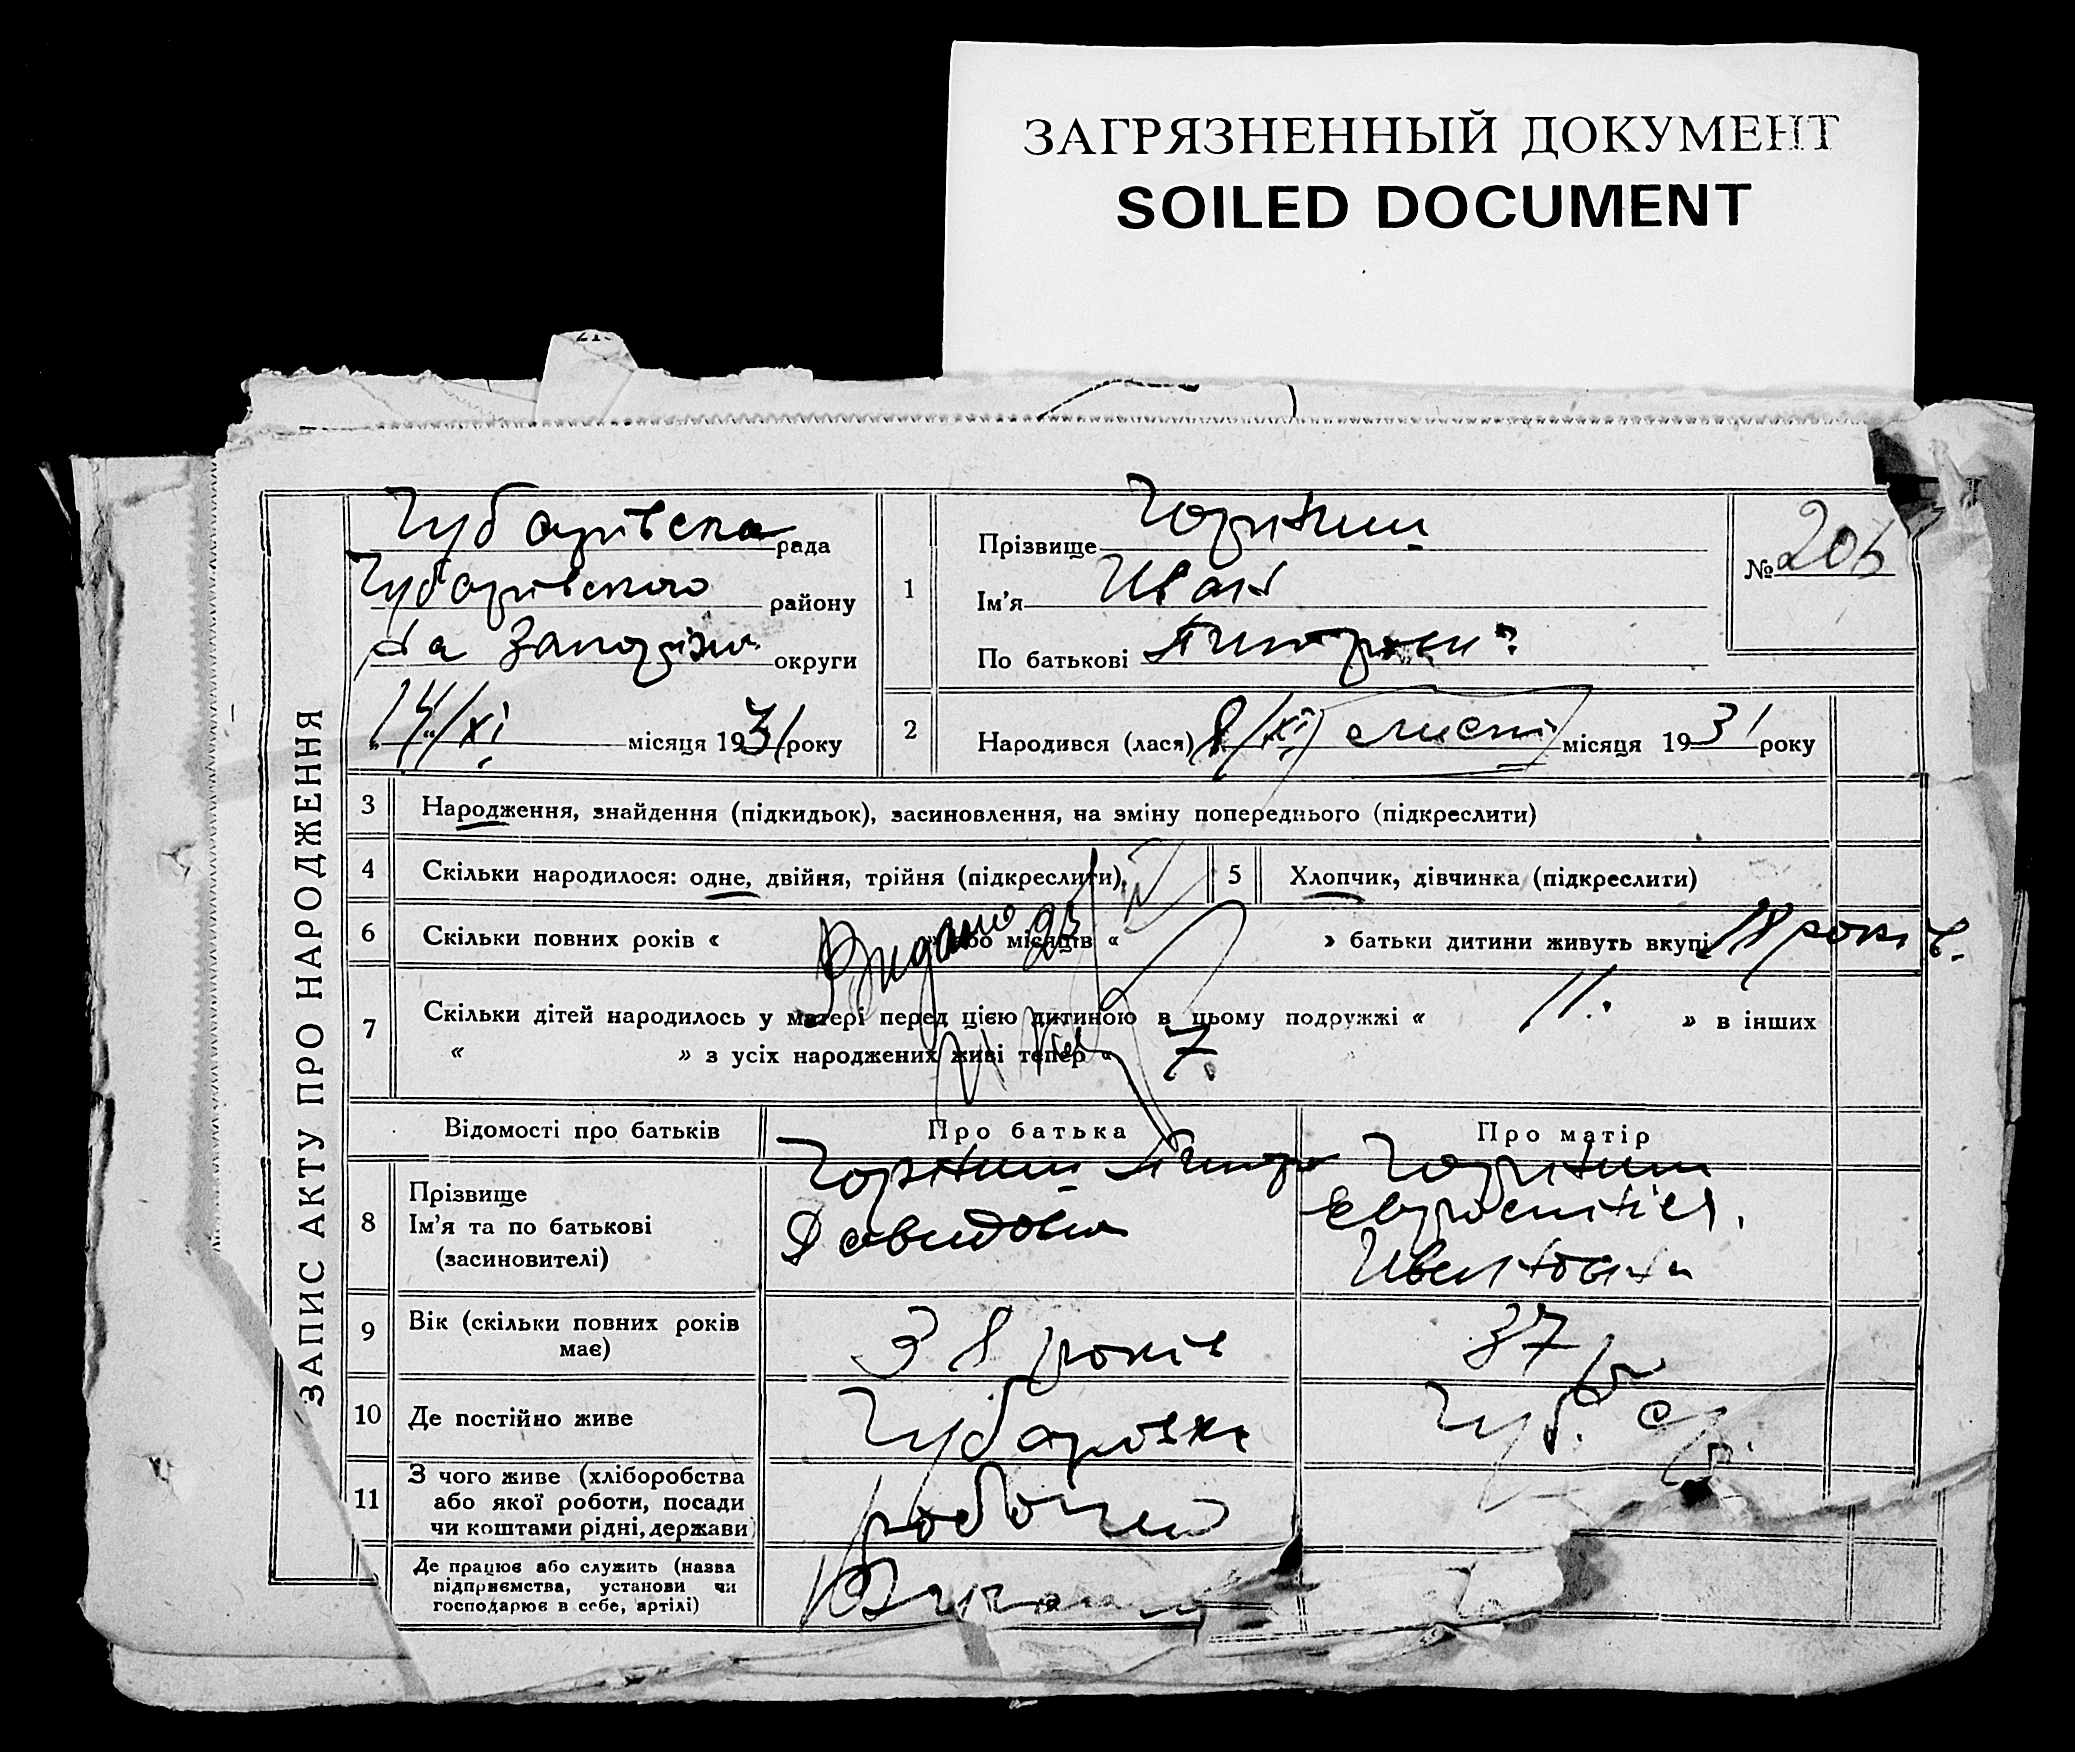 ЗАГРЯЗНЕННЫЙ ДОКУМЕНТ
SOILED DOCUMENT
ЗАПИС АКТУ ПРО НАРОДЖЕННЯ
Губарівска рада
Губарівского району
округи
14/XI місяця 1931 року
1
Прізвище
Ім'я Иван
По батькові
№ 206
2
Народився (лася) 8/XI місяця 1931 року
3 Народження, знайдення (підкидьок), засиновлення, на зміну попереднього (підкреслити)
4 Скільки народилося: одне, двійня, трійня (підкреслити)
5 Хлопчик, дівчинка (підкреслити)
6 Скільки повних років « » або місяців « » батьки дитини живуть вкупі 18 років.
Видано
7 Скільки дітей народилось у матері перед цією дитиною в цьому подружжі « 11. » в інших
« » з усіх народжених живі тепер « 7.
Відомості про батьків Про батька Про матір
8
Прізвище
Ім'я та по батькові
(засиновителі)
Давидович
Ивановна
9 Вік (скільки повних років має) 38 років 37
10 Де постійно живе Губаровка Губ.
11 З чого живе (хліборобства
або якої роботи, посади
чи коштами рідні, держави)
робочий
Де працює або служить (назва
підприємства, установи чи
господарює в себе, артілі)